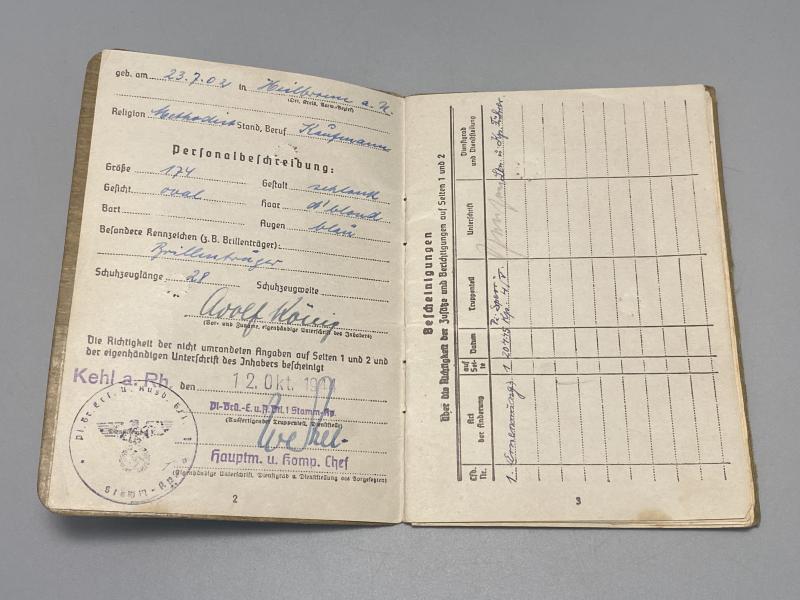 geb. am 23.7.02 in Heilbronn a. N.
(Ort, Kreis, Verw.-Bezirk)
Religion Methodist Stand, Beruf Kaufmann
Personalbeschreibung:
Größe 174 Gestalt schlank
Gesicht oval Haar d'blond
Bart Augen blau
Besondere Kennzeichen (z. B. Brillenträger):
Brillenträger
Schuhzeuglänge 28 Schuhzeugweite
Adolf König
(Vor- und Zuname, eigenhändige Unterschrift des Inhabers)
Die Richtigkeit der nicht umrandeten Angaben auf Seiten 1 und 2 und
der eigenhändigen Unterschrift des Inhabers bescheinigt
Kehl a. Rh. den 12. Okt. 1944
Pi-Brü.-E. u. A. Btl. 1 Stamm-Kp.
(Ausfertigender Truppenteil, Dienststelle)
Hauptm. u. Komp. Chef
(Eigenhändige Unterschrift, Dienstgrad u. Dienststellung des Vorgesetzten)
Stamm-Kp.
2
Bescheinigungen
über die Richtigkeit der Zusätze und Berichtigungen auf Seiten 1 und 2
Lfd. Nr.
Art der Änderung
auf Sei-te
Datum
Truppenteil
Unterschrift
Dienstgrad und Dienststellung
1. Ernennung 1 20.4.45 Pi. Sperr
3